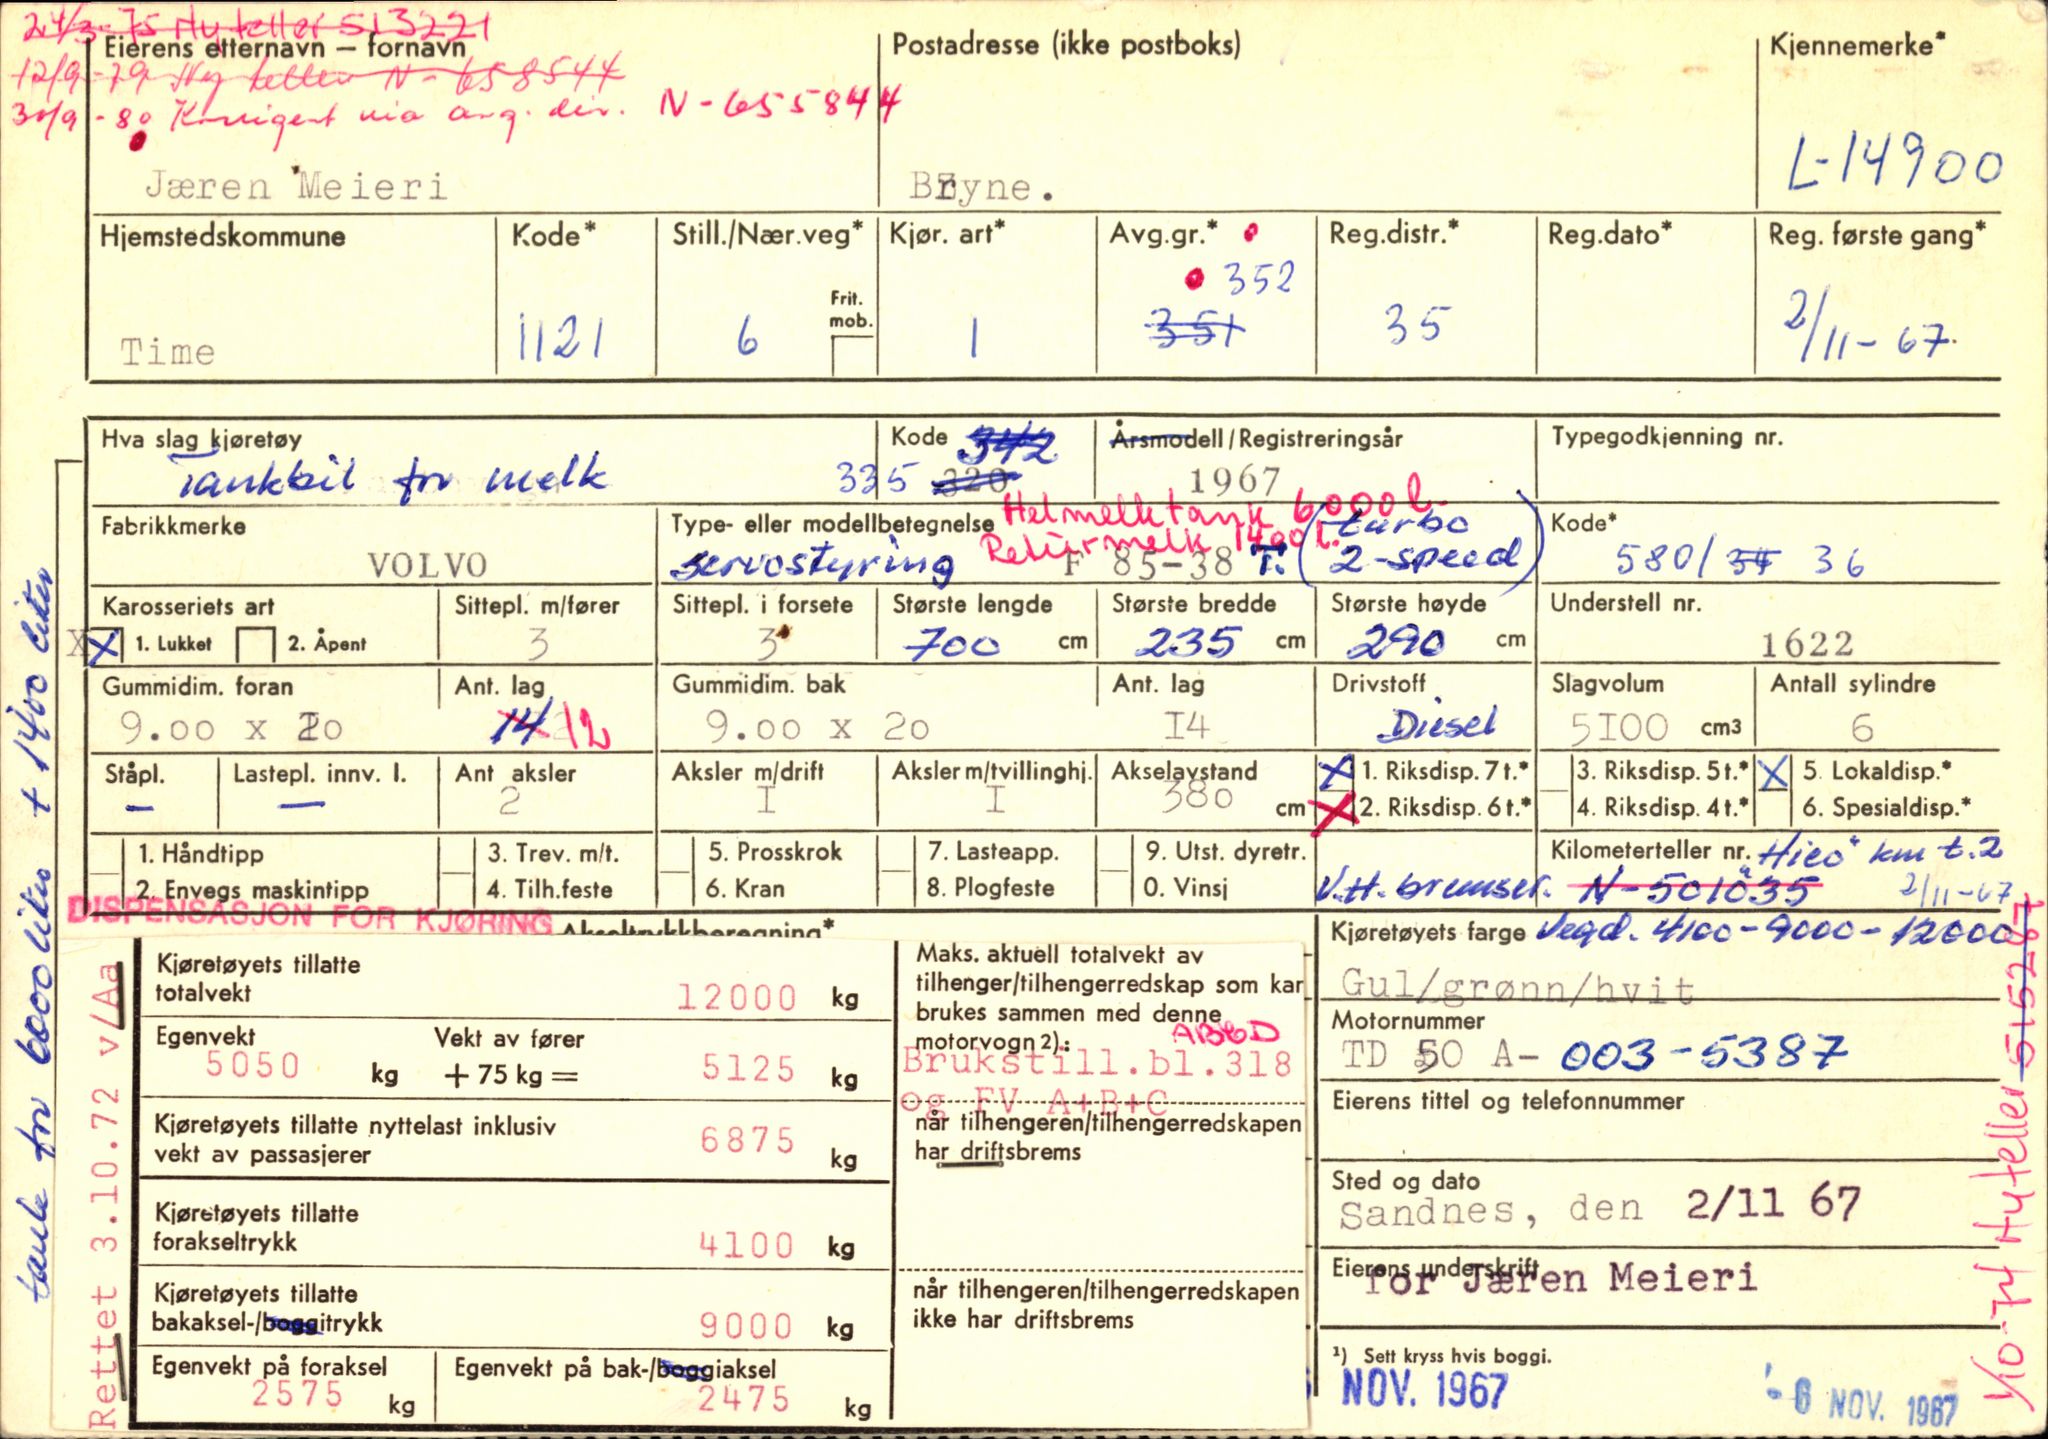 24/3-75 Ny teller 513221
Eierens etternavn – fornavn
Postadresse (ikke postboks)
Kjennemerke*
12/9-79 Ny teller N-658544
30/9-80 Korrigert via avg. dir. N-655844
Jæren Meieri
Bryne.
L-14900
Hjemstedskommune
Kode*
Still./Nær.veg*
Kjør. art*
Avg.gr.*
Reg.distr.*
Reg.dato*
Reg. første gang*
Frit. mob.
352
Time
1121
6
1
351
35
2/11-67.
Hva slag kjøretøy
Kode
342
Årsmodell/Registreringsår
Typegodkjenning nr.
Tankbil for melk
335
320
1967
Fabrikkmerke
Type- eller modellbetegnelse
Helmelktank 6000 l.
Returmelk 1400 l.
Kode*
VOLVO
servostyring
F 85-38 T. (turbo 2-speed)
580/ 34 36
Karosseriets art
Sittepl. m/fører
Sittepl. i forsete
Største lengde
Største bredde
Største høyde
Understell nr.
X
X 1. Lukket
2. Åpent
3
3
700 cm
235 cm
290 cm
1622
Gummidim. foran
Ant. lag
Gummidim. bak
Ant. lag
Drivstoff
Slagvolum
Antall sylindre
9.00 x 20
14 12
9.00 x 20
I4
Diesel
5I00 cm3
6
Ståpl.
Lastepl. innv. l.
Ant aksler
Aksler m/drift
Aksler m/tvillinghj.
Akselavstand
X 1. Riksdisp. 7 t.*
3. Riksdisp. 5 t.*
X 5. Lokaldisp.*
–
–
2
I
I
380 cm
X 2. Riksdisp. 6 t.*
4. Riksdisp. 4 t.*
6. Spesialdisp.*
1. Håndtipp
3. Trev. m/t.
5. Prosskrok
7. Lasteapp.
9. Utst. dyretr.
Kilometerteller nr. "Hico" km t. 2
2. Envegs maskintipp
4. Tilh.feste
6. Kran
8. Plogfeste
0. Vinsj
V.H. bremser.
N-501035
2/11-67
DISPENSASJON FOR KJØRING
Akseltrykkberegning*
Kjøretøyets farge
Vegd. 4100-9000-12000
Gul/grønn/hvit
Kjøretøyets tillatte totalvekt
12000 kg
Maks. aktuell totalvekt av
tilhenger/tilhengerredskap som kan
brukes sammen med denne
motorvogn 2):
ABCD
Brukstill.bl.318
og FV A+B+C
når tilhengeren/tilhengerredskapen
har driftsbrems
Motornummer
TD 50 A- 003-5387
Egenvekt
5050 kg
Vekt av fører
+ 75 kg =
5125 kg
Eierens tittel og telefonnummer
Kjøretøyets tillatte nyttelast inklusiv
vekt av passasjerer
6875 kg
Sted og dato
Sandnes, den 2/11 67
Kjøretøyets tillatte
forakseltrykk
4100 kg
Eierens underskrift
for Jæren Meieri
Kjøretøyets tillatte
bakaksel-/boggitrykk
9000 kg
når tilhengeren/tilhengerredskapen
ikke har driftsbrems
Egenvekt på foraksel
2575 kg
Egenvekt på bak-/boggiaksel
2475 kg
1) Sett kryss hvis boggi.
NOV. 1967
- 6 NOV. 1967
tank for 6000 liter + 1400 liter
Rettet 3.10.72 v/Aa
1/10-74 Ny teller 515287